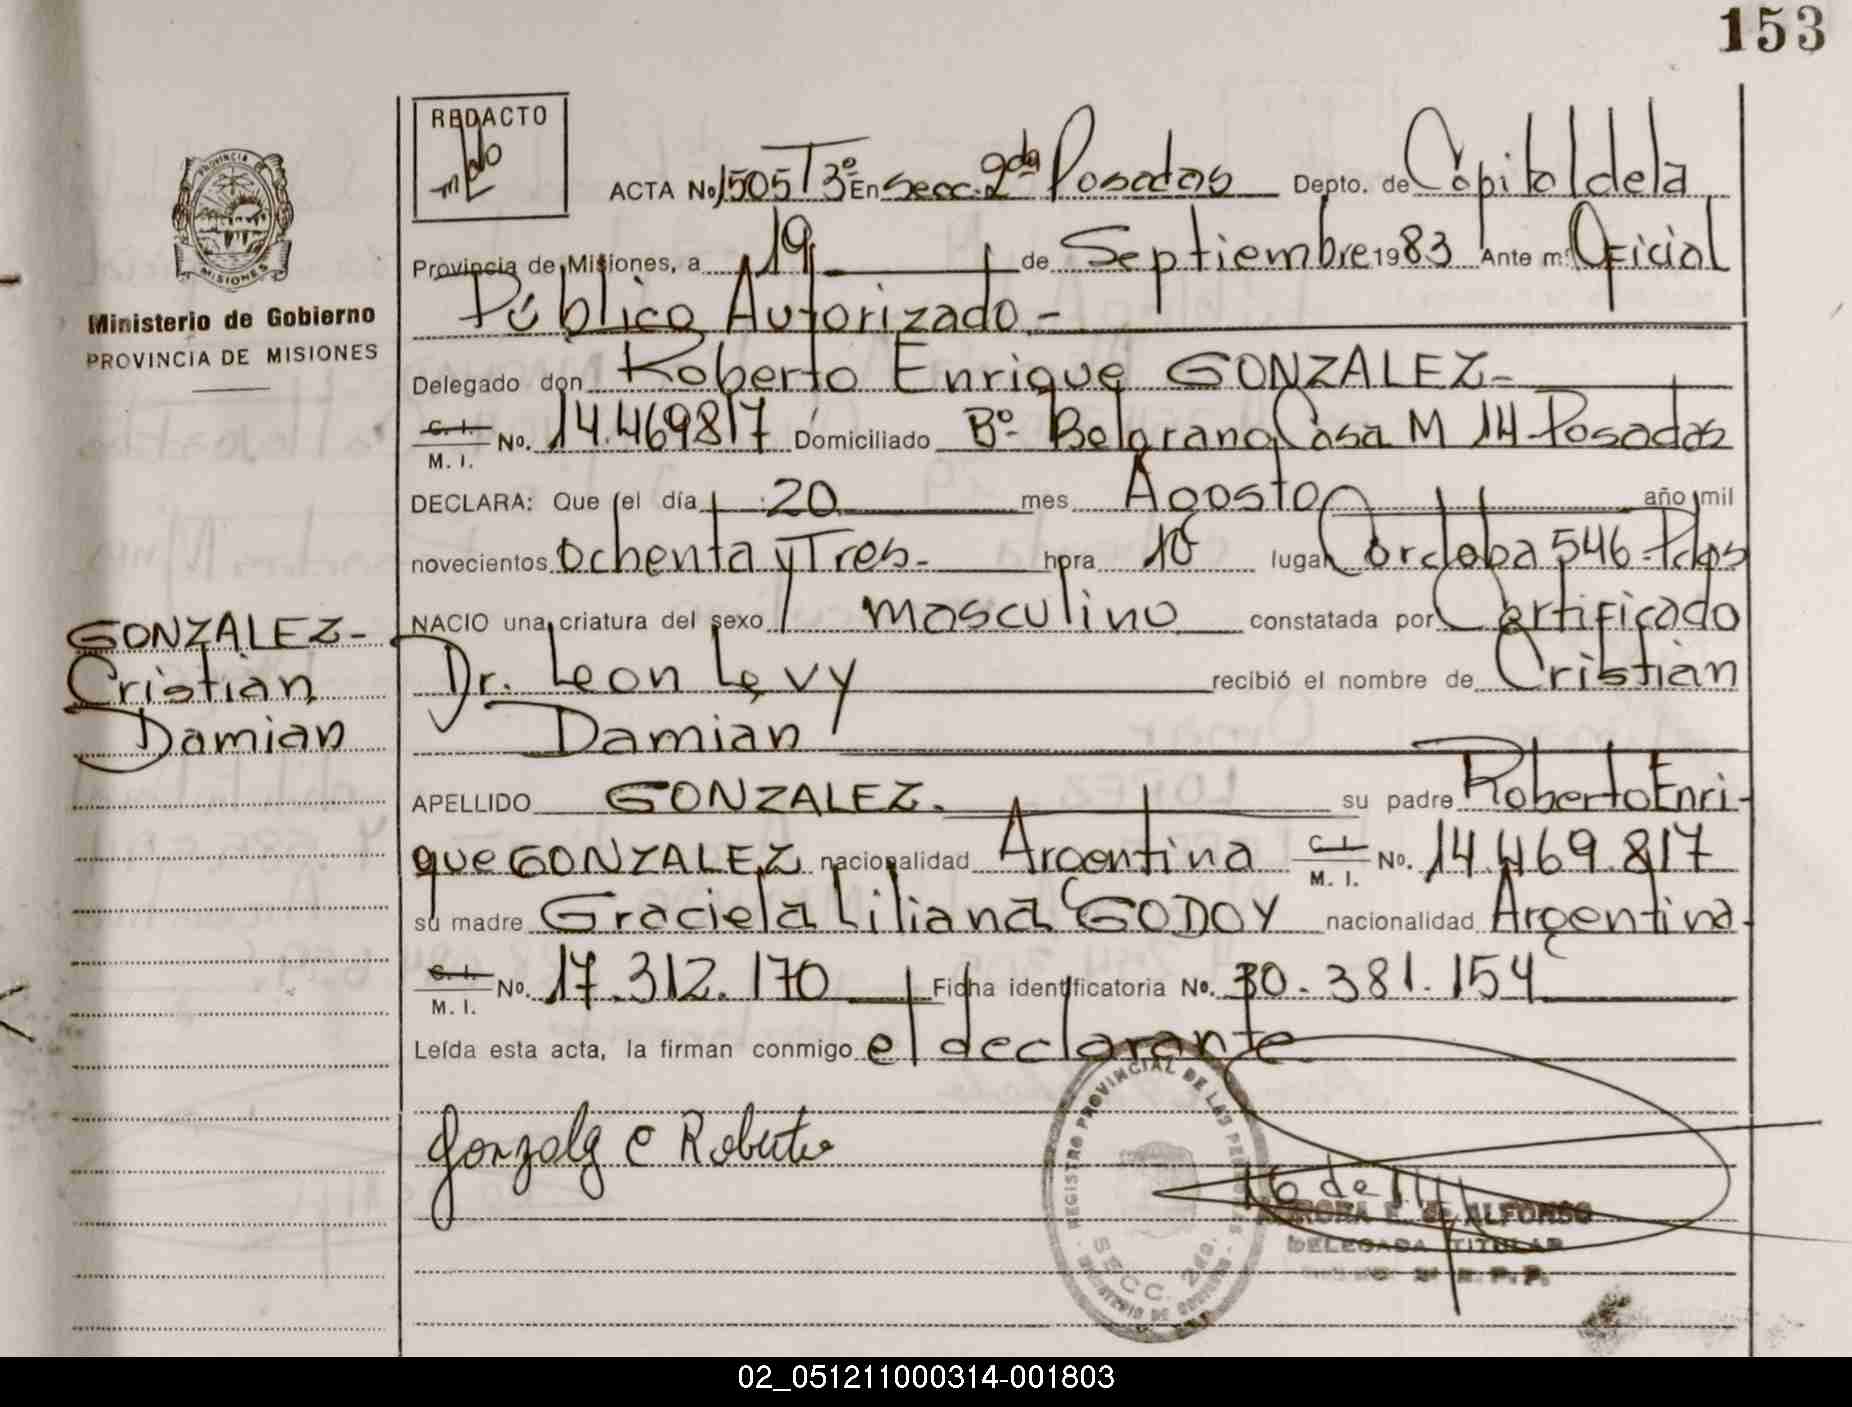 153
REDACTO
ACTA No 1505 T 3º En Secc. 2da Posadas Depto. de Capital de la
PROVINCIA DE MISIONES
Provincia de Misiones, a 19 de Septiembre 1983 Ante mi Oficial
Público Autorizado.-
Ministerio de Gobierno
PROVINCIA DE MISIONES
Delegado don Roberto Enrique GONZALEZ-
C. I. M. I. No. 14.469817 Domiciliado Bº Belgrano Casa M 14-Posadas
DECLARA: Que el día 20 mes Agosto año mil
novecientos ochenta y Tres.- hora 10 lugar Córdoba 546-Pdas
NACIO una criatura del sexo masculino constatada por Certificado
GONZALEZ-
Cristian
Damian
Dr. Leon Levy recibió el nombre de Cristian
Damian
APELLIDO GONZALEZ. su padre Roberto Enri-
que GONZALEZ nacionalidad Argentina C. I. M. I. No. 14.469.817
su madre Graciela Liliana GODOY nacionalidad Argentina-
C. I. M. I. No. 17.312.170 Ficha identificatoria No. 30.381.154
Leída esta acta, la firman conmigo el declarante
Gonzalez E Roberto
REGISTRO PROVINCIAL DE LAS PERSONAS
SECC. 2da.
MINISTERIO DE GOBIERNO
16 de
AURORA E. ALFONSO
DELEGADA TITULAR
R.P.P.
02_051211000314-001803